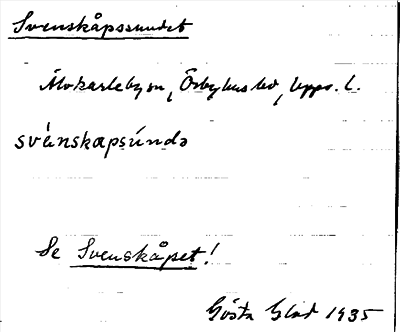 Svenskåpssundet
Älvkarleby sn, Örbyhus hd, Upps. l.
svénskapsúndə
Se Svenskåpet!
Gösta Glad 1935